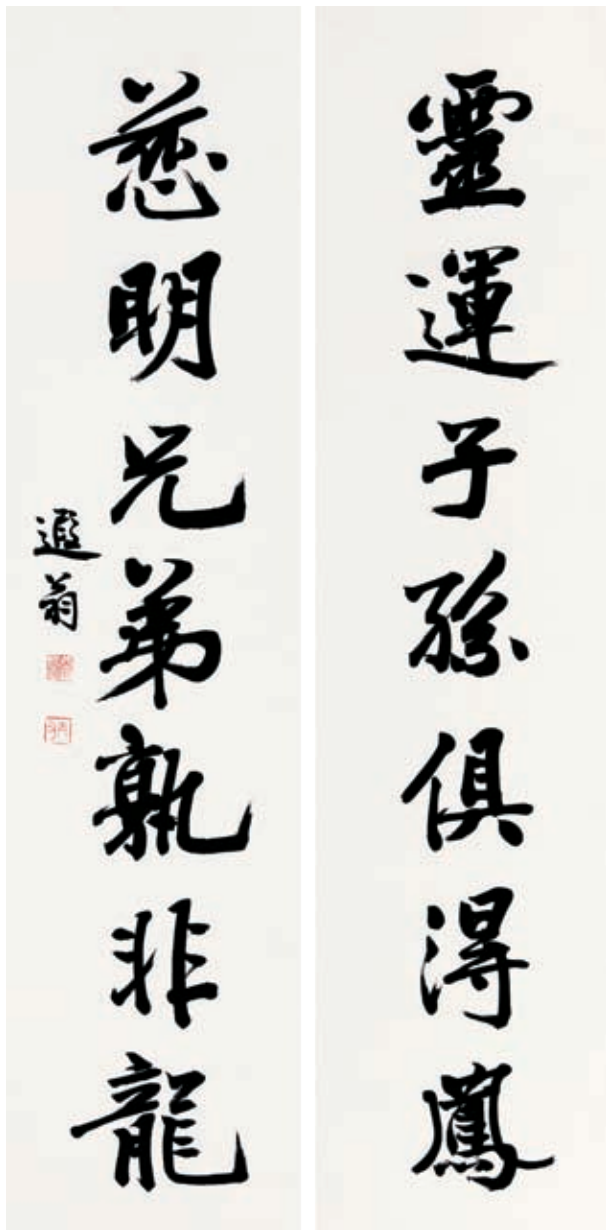 靈運子孫俱得鳳
慈明兄弟孰非龍
遐翁